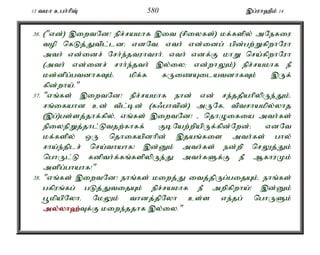 13 வமா உபர்ரீஉ 580 இப்ராஹீம் 14
36. ("என்) இறைவனே! நிச்சயமாக இவை (சிலைகள்) மக்களில் அநேகரை
வழி கெடுத்துவிட்டன; எனவே, எவர் என்னைப் பின்பற்றுகிறாரோ
அவர் என்னைச் சேர்ந்தவராவார். எவர் எனக்கு மாறு செய்கிறாரோ
(அவர் என்னைச் சார்ந்தவர் இல்லை; என்றாலும்) நிச்சயமாக நீ
மன்னிப்பவனாகவும், மிக்க கருணையுடையவனாகவும் இருக்
கின்றாய்."
37. "எங்கள் இறைவனே! நிச்சயமாக நான் என் சந்ததியாரிலிருந்தும்,
சங்கையான உன் வீட்டின் (கஃபாவின்) அருகே, விவசாயமில்லாத
(இப்)பள்ளத்தாக்கில், எங்கள் இறைவனே! , தொழுகையை அவர்கள்
நிலைநிறுத்தாட்டுவதற்காகக் குடியேற்றியிருக்கின்றேன்; எனவே
மக்களில் ஒரு தொகையினரின் இதயங்களை அவர்கள் பால்
சாய்ந்திடச் செய்வாயாக! இன்னும் அவர்கள் நன்றி செலுத்தும்
பொருட்டு கனிவர்க்கங்களிலிருந்து அவர்களுக்கு நீ ஆகாரமும்
அளிப்பாயாக!"
38. "எங்கள் இறைவனே! நாங்கள் மறைத்து வைத்திருப்பதையும், நாங்கள்
பகிரங்கப் படுத்துவதையும் நிச்சயமாக நீ அறிகிறாய்! இன்னும்
பூமியிலோ, மேலும் வானத்திலோ உள்ள எந்தப் பொருளும்
அல்லாஹ்வுக்கு மறைந்ததாக இல்லை."